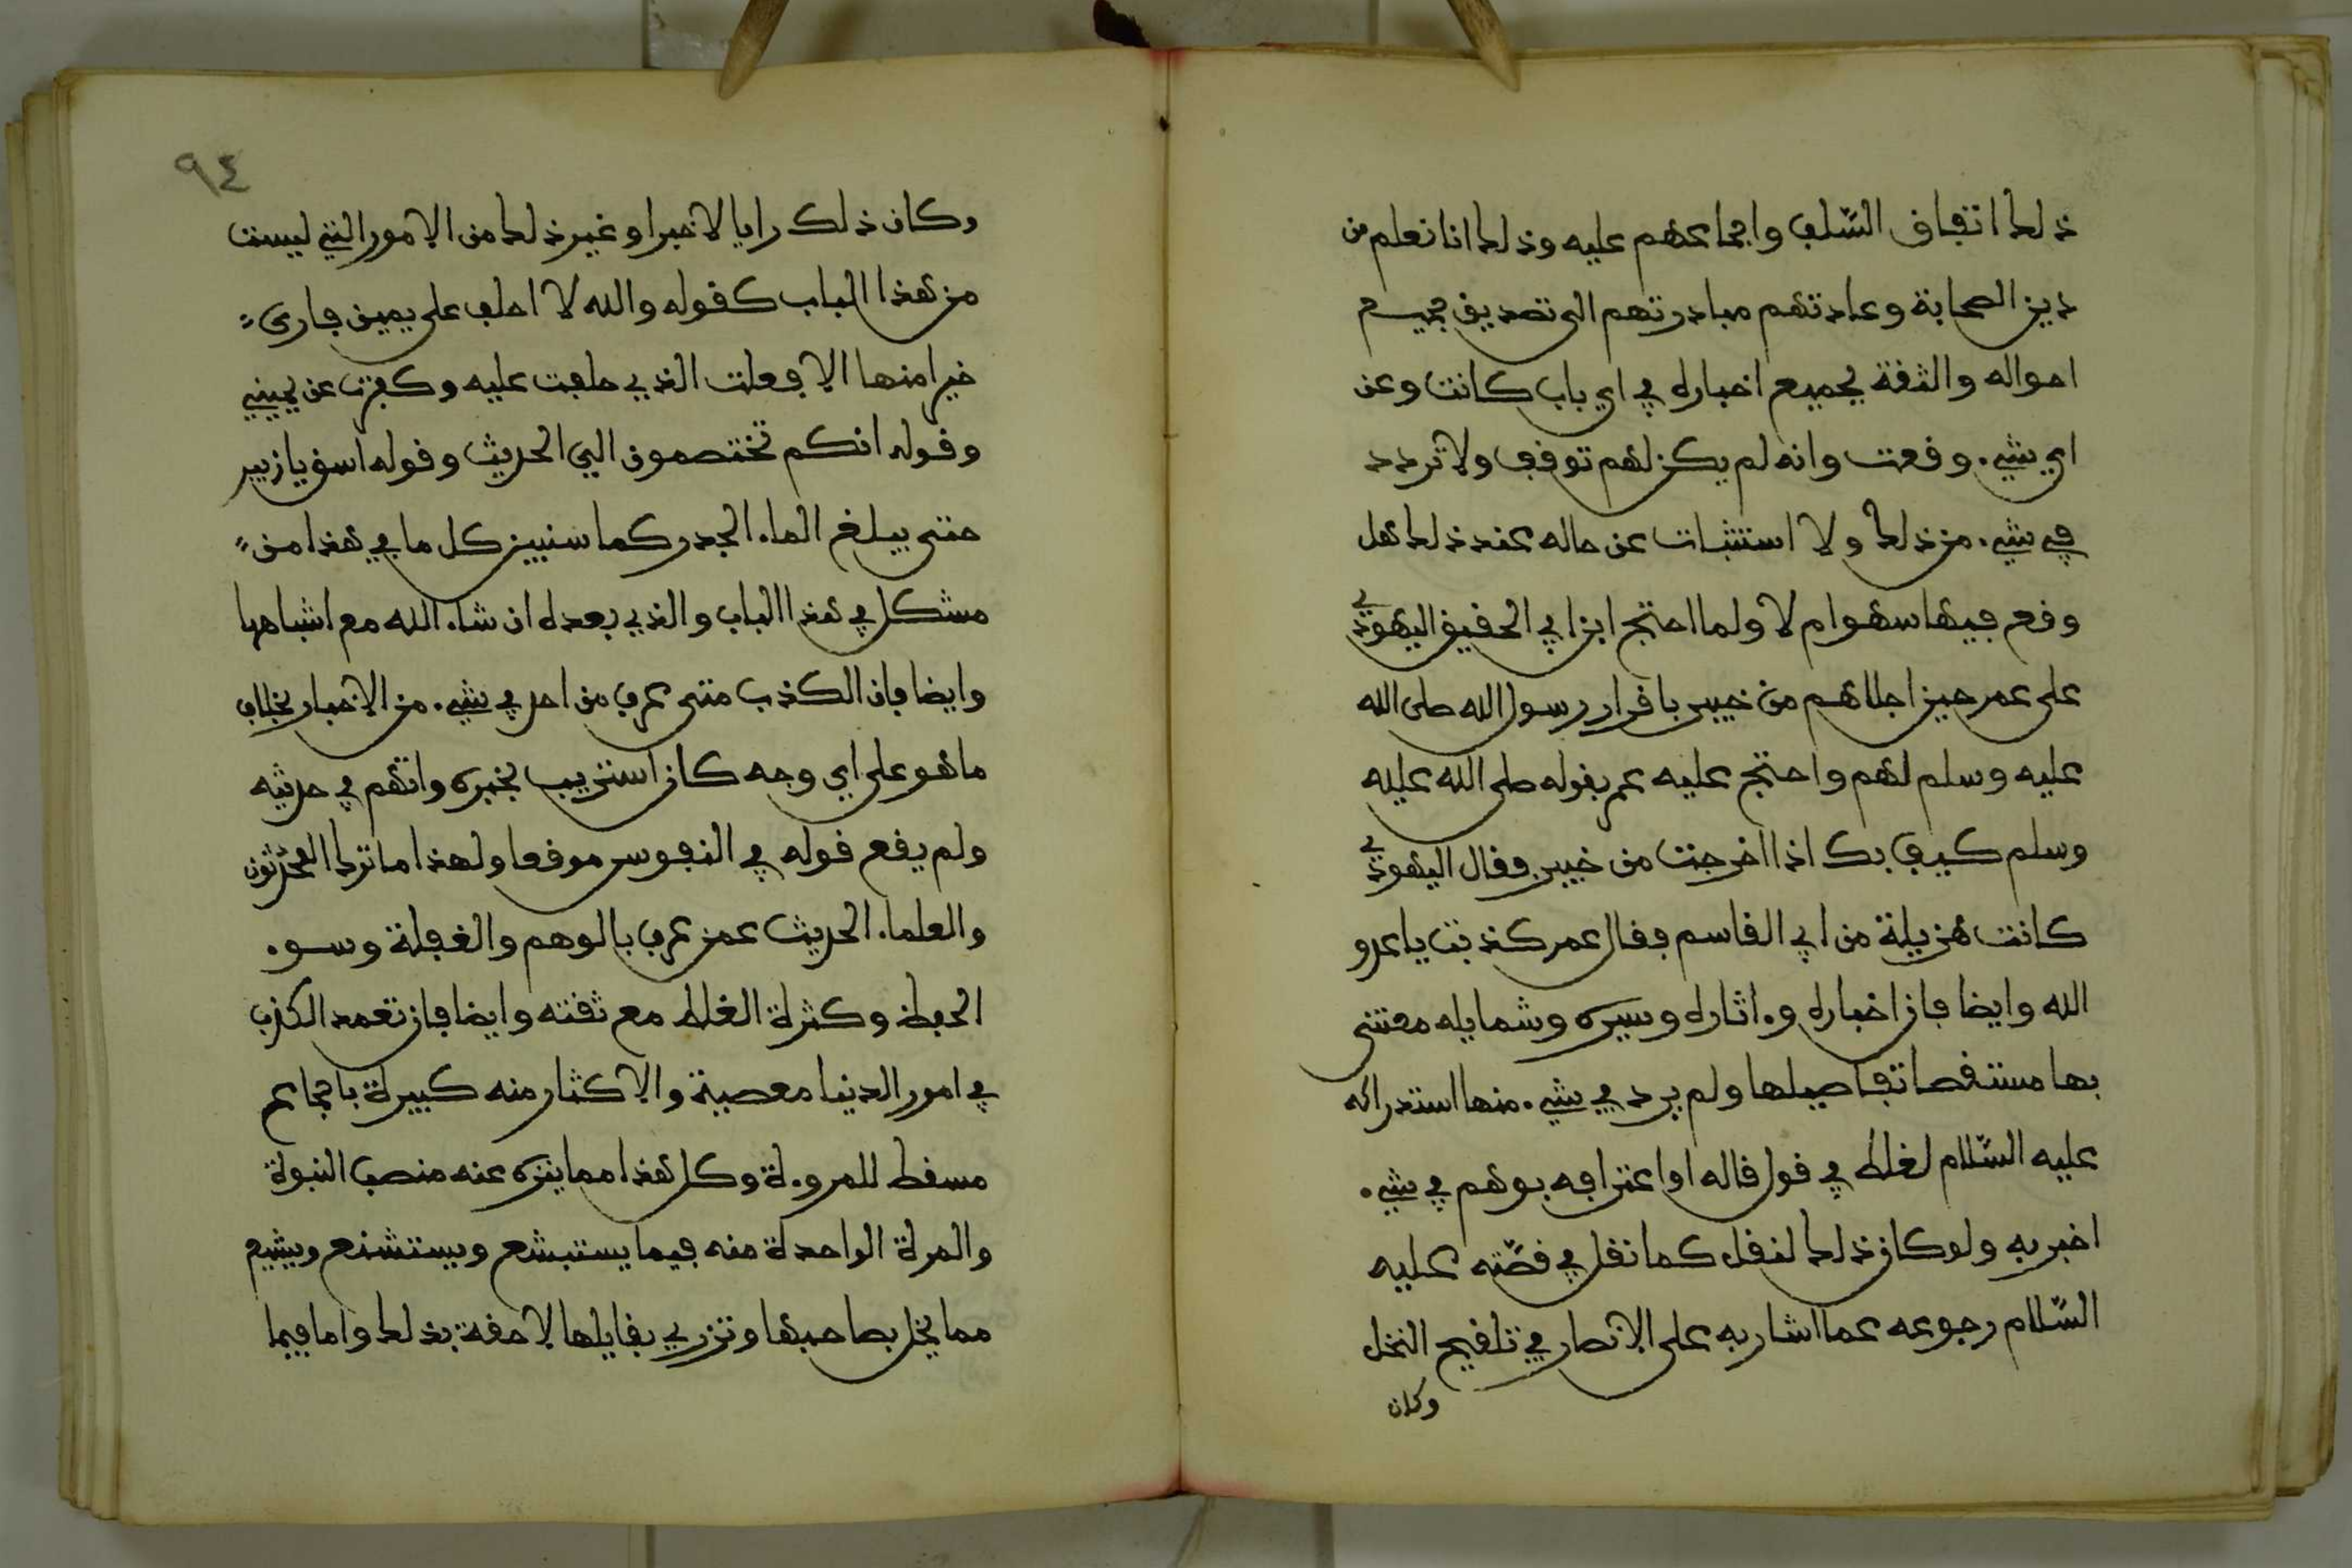 ذلك اتفاق السّلف واجماعهم عليه وذلك انا نعلم من
دين الصحابة وعادتهم مبادرتهم الى تصديق جميع
احواله والثقة بجميع اخباره في اي باب كانت وعن
اي شيء وقعت وانه لم يكن لهم توقف ولا تردد
في شيء من ذلك ولا استثبات عن حاله عند ذلك هل
وقع فيها سهو ام لا ولما احتج ابن ابي الحقيق اليهودي
على عمر حين اجلاهم من خيبر باقرار رسول الله صلى الله
عليه وسلم لهم واحتج عليه عمر بقوله صلى الله عليه
وسلم كيف بك اذا اخرجت من خيبر وقال اليهودي
كانت هزيلة من ابي القاسم فقال عمر كذبت يا عدو
الله وايضا فان اخباره وءاثاره وسيره وشمايله معتنى
بها مستقصا تفاصيلها ولم يرد في شيء منها استدراكه
عليه السّلام لغلط في قول قاله او اعترافه بوهم في شيء
اخبر به ولو كان ذلك لنقل كما نقل في قصّته عليه
السّلام رجوعه عما اشار به على الانصار في تلقيح النخل
وكان
٩٤
وكان ذلك رايا لا خبرا وغير ذلك من الامور التي ليست
من هذا الباب كقوله والله لا احلف على يمين فارى
خيرا منها الا فعلت الذي حلفت عليه وكفرت عن يميني
وقوله انكم تختصمون الي الحديث وقوله اسق يا زبير
حتى يبلغ الماء الجدر كما سنبين كل ما في هذا من
مشكل في هذا الباب والذي بعده ان شاء الله مع اشباهها
وايضا فان الكذب متى عرف من احد في شيء من الاخبار بخلاف
ما هو على اي وجه كان استريب بخبره واتهم في حديثه
ولم يقع قوله في النفوس موقعا ولهذا ما ترك المحدّثون
والعلماء الحديث عمن عرف بالوهم والغفلة وسوء
الحفظ وكثرة الغلط مع ثقته وايضا فان تعمد الكذب
في امور الدنيا معصية والاكثار منه كبيرة باجماع
مسقط للمروءة وكل هذا مما ينزه عنه منصب النبوة
والمرة الواحدة منه فيما يستبشع ويستشنع ويشيع
مما يخل بصاحبها وتزري بقايلها لاحقة بذلك واما فيما